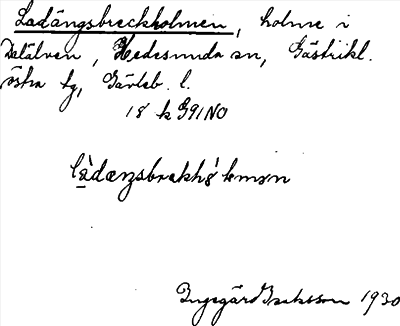 Ladängsbreckholmen, holme i
Dalälven, Hedesunda sn, Gästrikl.
östra tg, Gävleb. l.
18 k G91NO
Ingegärd Isaksson 1930